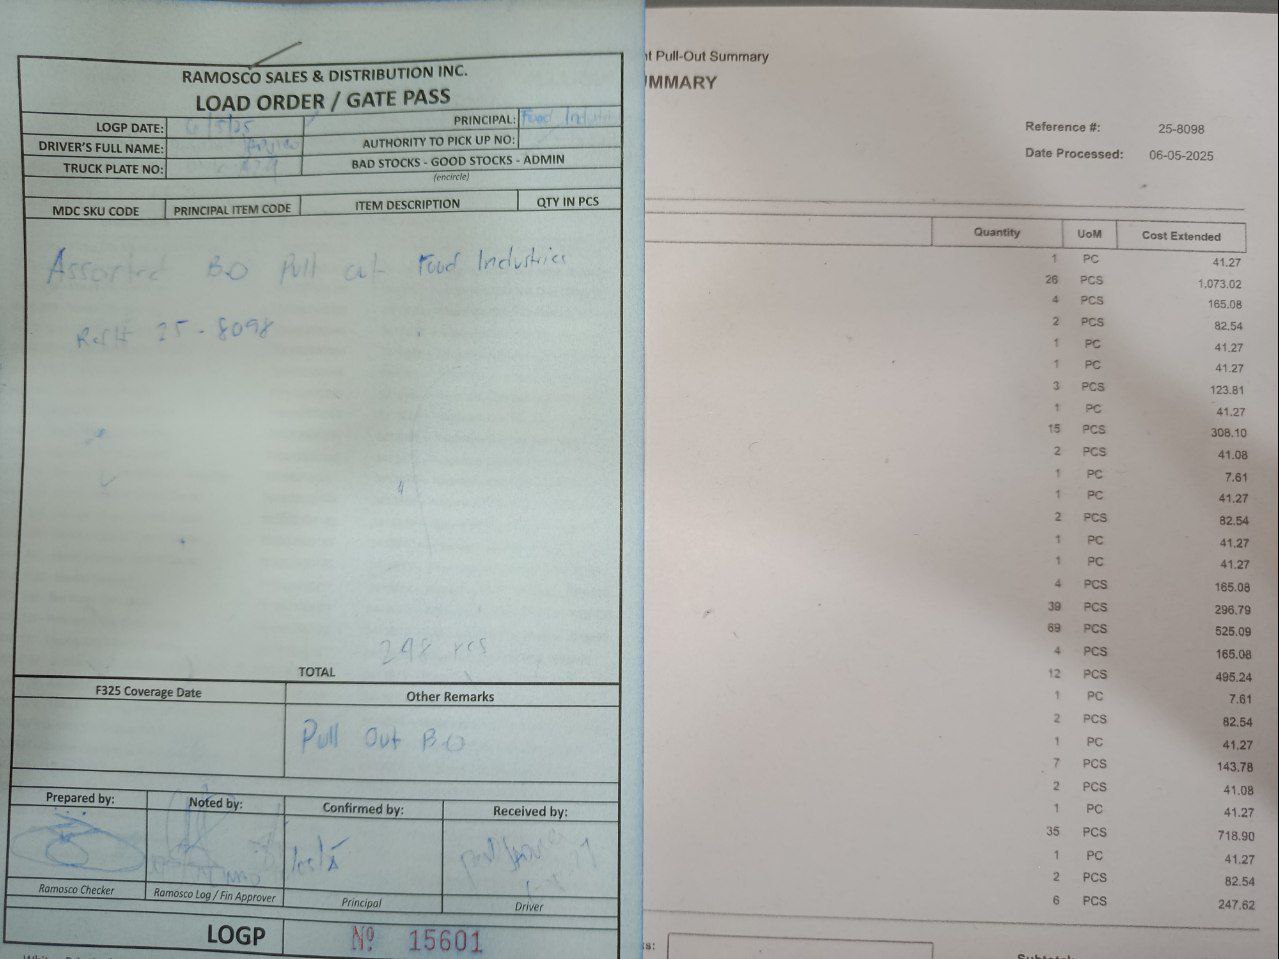 RAMOSCO SALES & DISTRIBUTION INC.
LOAD ORDER / GATE PASS
LOGP DATE: 6/5/25 PRINCIPAL: Food Industri
DRIVER'S FULL NAME: AUTHORITY TO PICK UP NO:
TRUCK PLATE NO: BAD STOCKS - GOOD STOCKS - ADMIN
(encircle)
MDC SKU CODE PRINCIPAL ITEM CODE ITEM DESCRIPTION QTY IN PCS
Assorted B.O Pull out Food Industries
Ref# 25-8098
298 pcs
TOTAL
F325 Coverage Date Other Remarks
Pull Out B.O
Prepared by: Noted by: Confirmed by: Received by:
Ramosco Checker Ramosco Log / Fin Approver Principal Driver
LOGP Nº 15601
nt Pull-Out Summary
MMARY
Reference #: 25-8098
Date Processed: 06-05-2025
Quantity UoM Cost Extended
1 PC 41.27
26 PCS 1,073.02
4 PCS 165.08
2 PCS 82.54
1 PC 41.27
1 PC 41.27
3 PCS 123.81
1 PC 41.27
15 PCS 308.10
2 PCS 41.08
1 PC 7.61
1 PC 41.27
2 PCS 82.54
1 PC 41.27
1 PC 41.27
4 PCS 165.08
39 PCS 296.79
69 PCS 525.09
4 PCS 165.08
12 PCS 495.24
1 PC 7.61
2 PCS 82.54
1 PC 41.27
7 PCS 143.78
2 PCS 41.08
1 PC 41.27
35 PCS 718.90
1 PC 41.27
2 PCS 82.54
6 PCS 247.62
s: